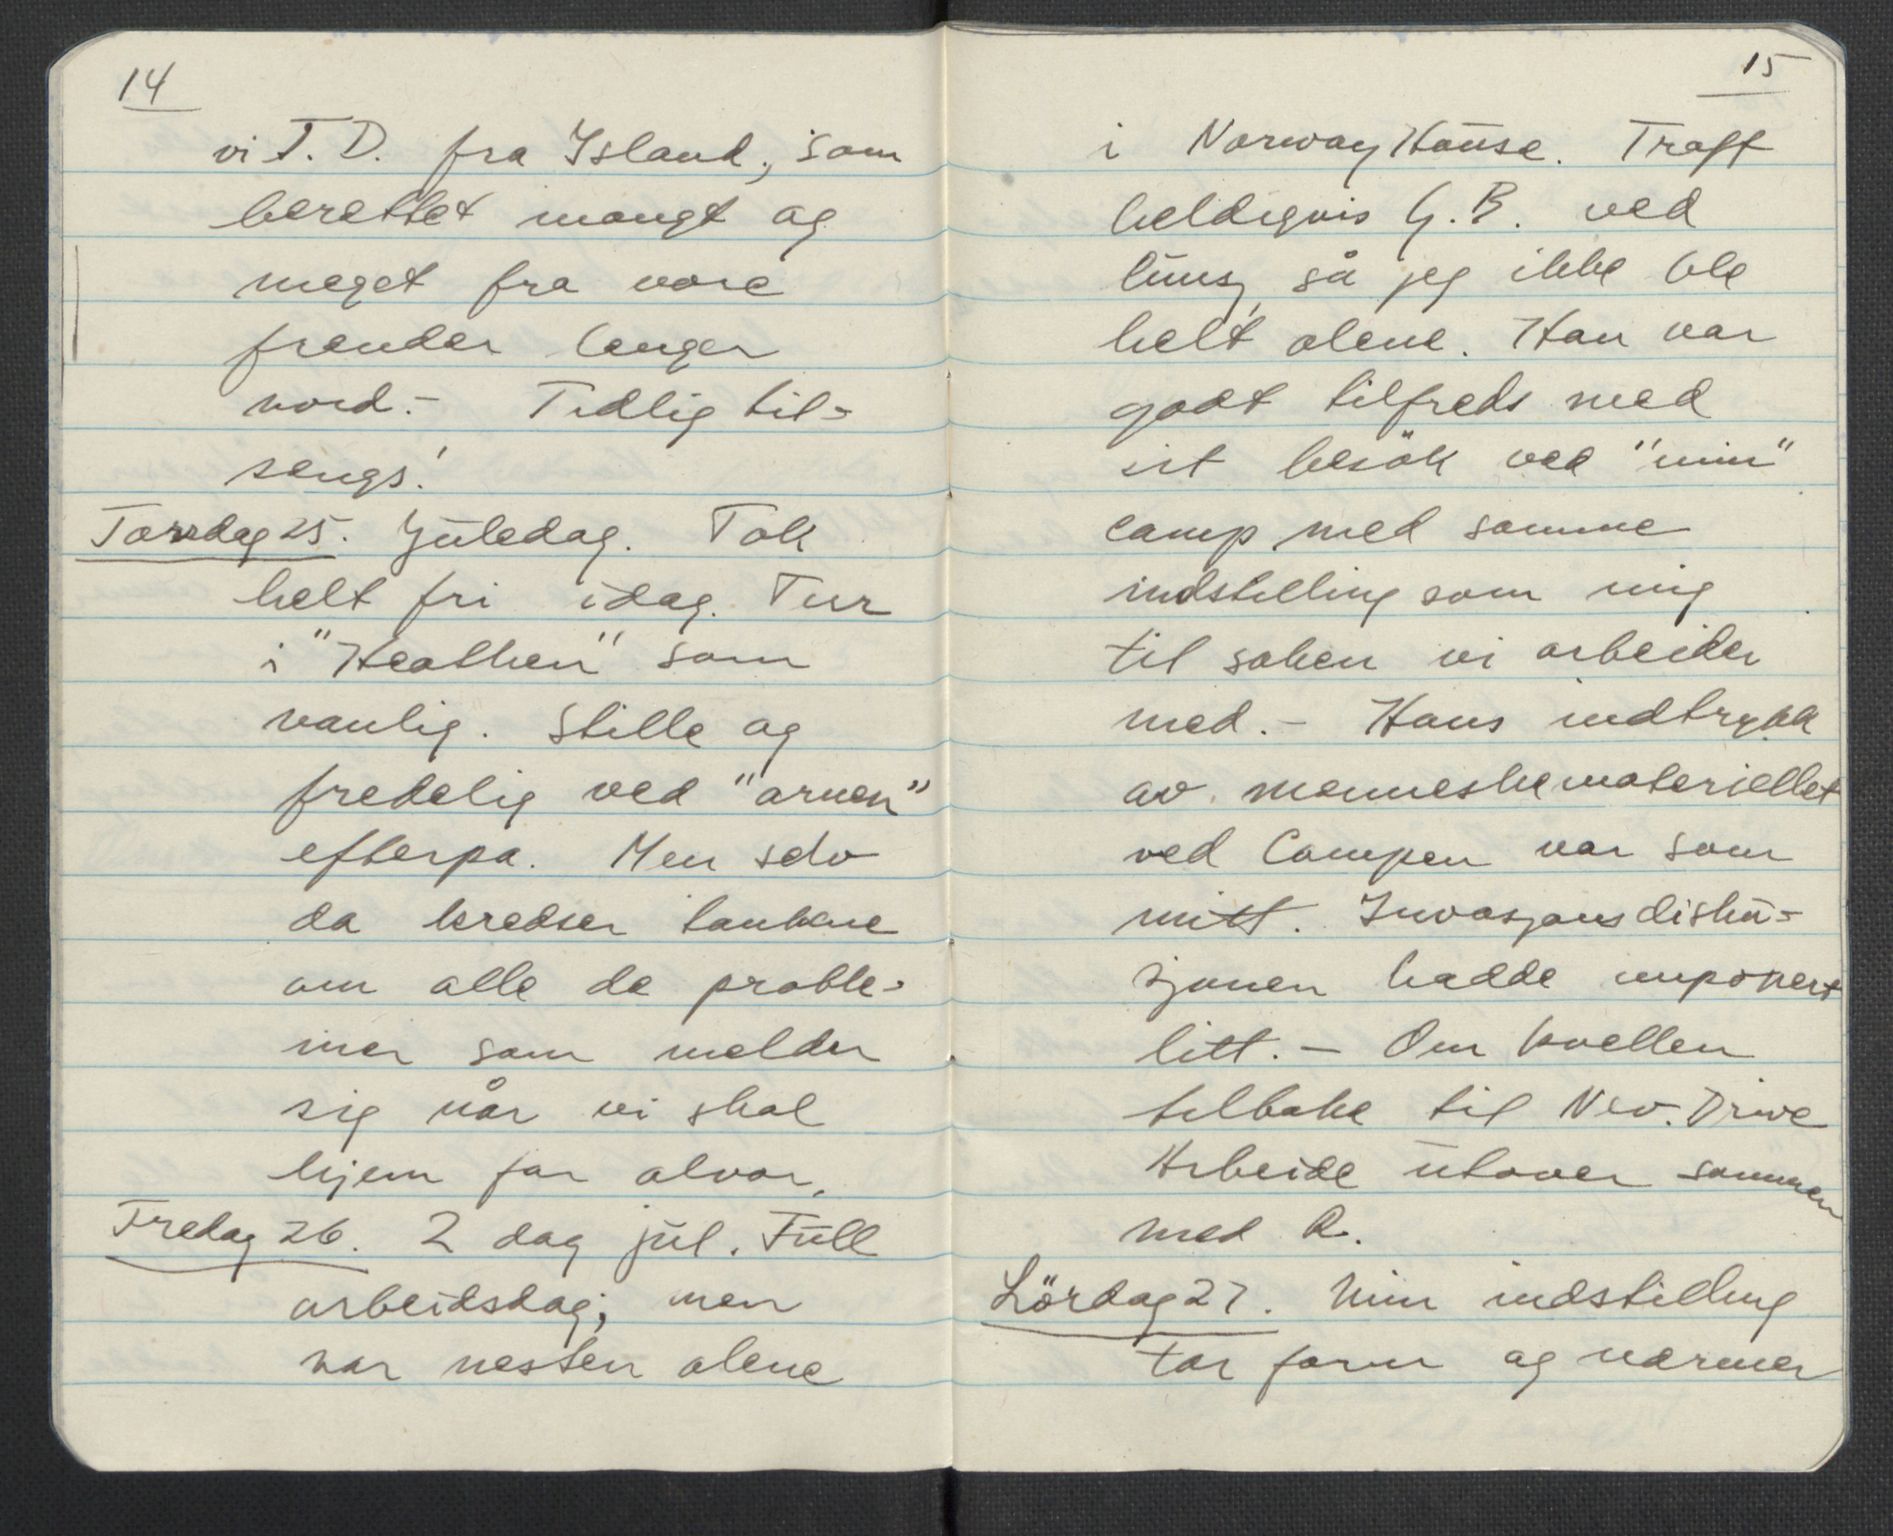 14
vi T. D. fra Island, som
berettet mangt og
meget fra vore
frender lenger
nord. – Tidlig til-
sengs!
Torsdag 25. Juledag. Tok
helt fri idag. Tur
i "Heathen" som
vanlig. Stille og
fredelig ved "arnen"
efterpa. Men selv
da kredser tankene
om alle de proble-
mer som melder
sig når vi skal
hjem for alvor.
Fredag 26. 2 dag jul. Full
arbeidsdag; men
var nesten alene
15
i Norway House. Traff
heldigvis G. B. ved
lunsj, så jeg ikke ble
helt alene. Han var
godt tilfreds med
sit besök ved "min"
camp med samme
indstilling som mig
til saken vi arbeider
med. – Hans indtrykk
av menneskematerialet
ved Campen var som
mitt. Invasjonsdisku-
sjonen hadde imponert
litt. – Om kvellen
tilbake til Nev. Drive
Arbeide utover sammen
med R.
Lördag 27. Min indstilling
tar form og nærmer